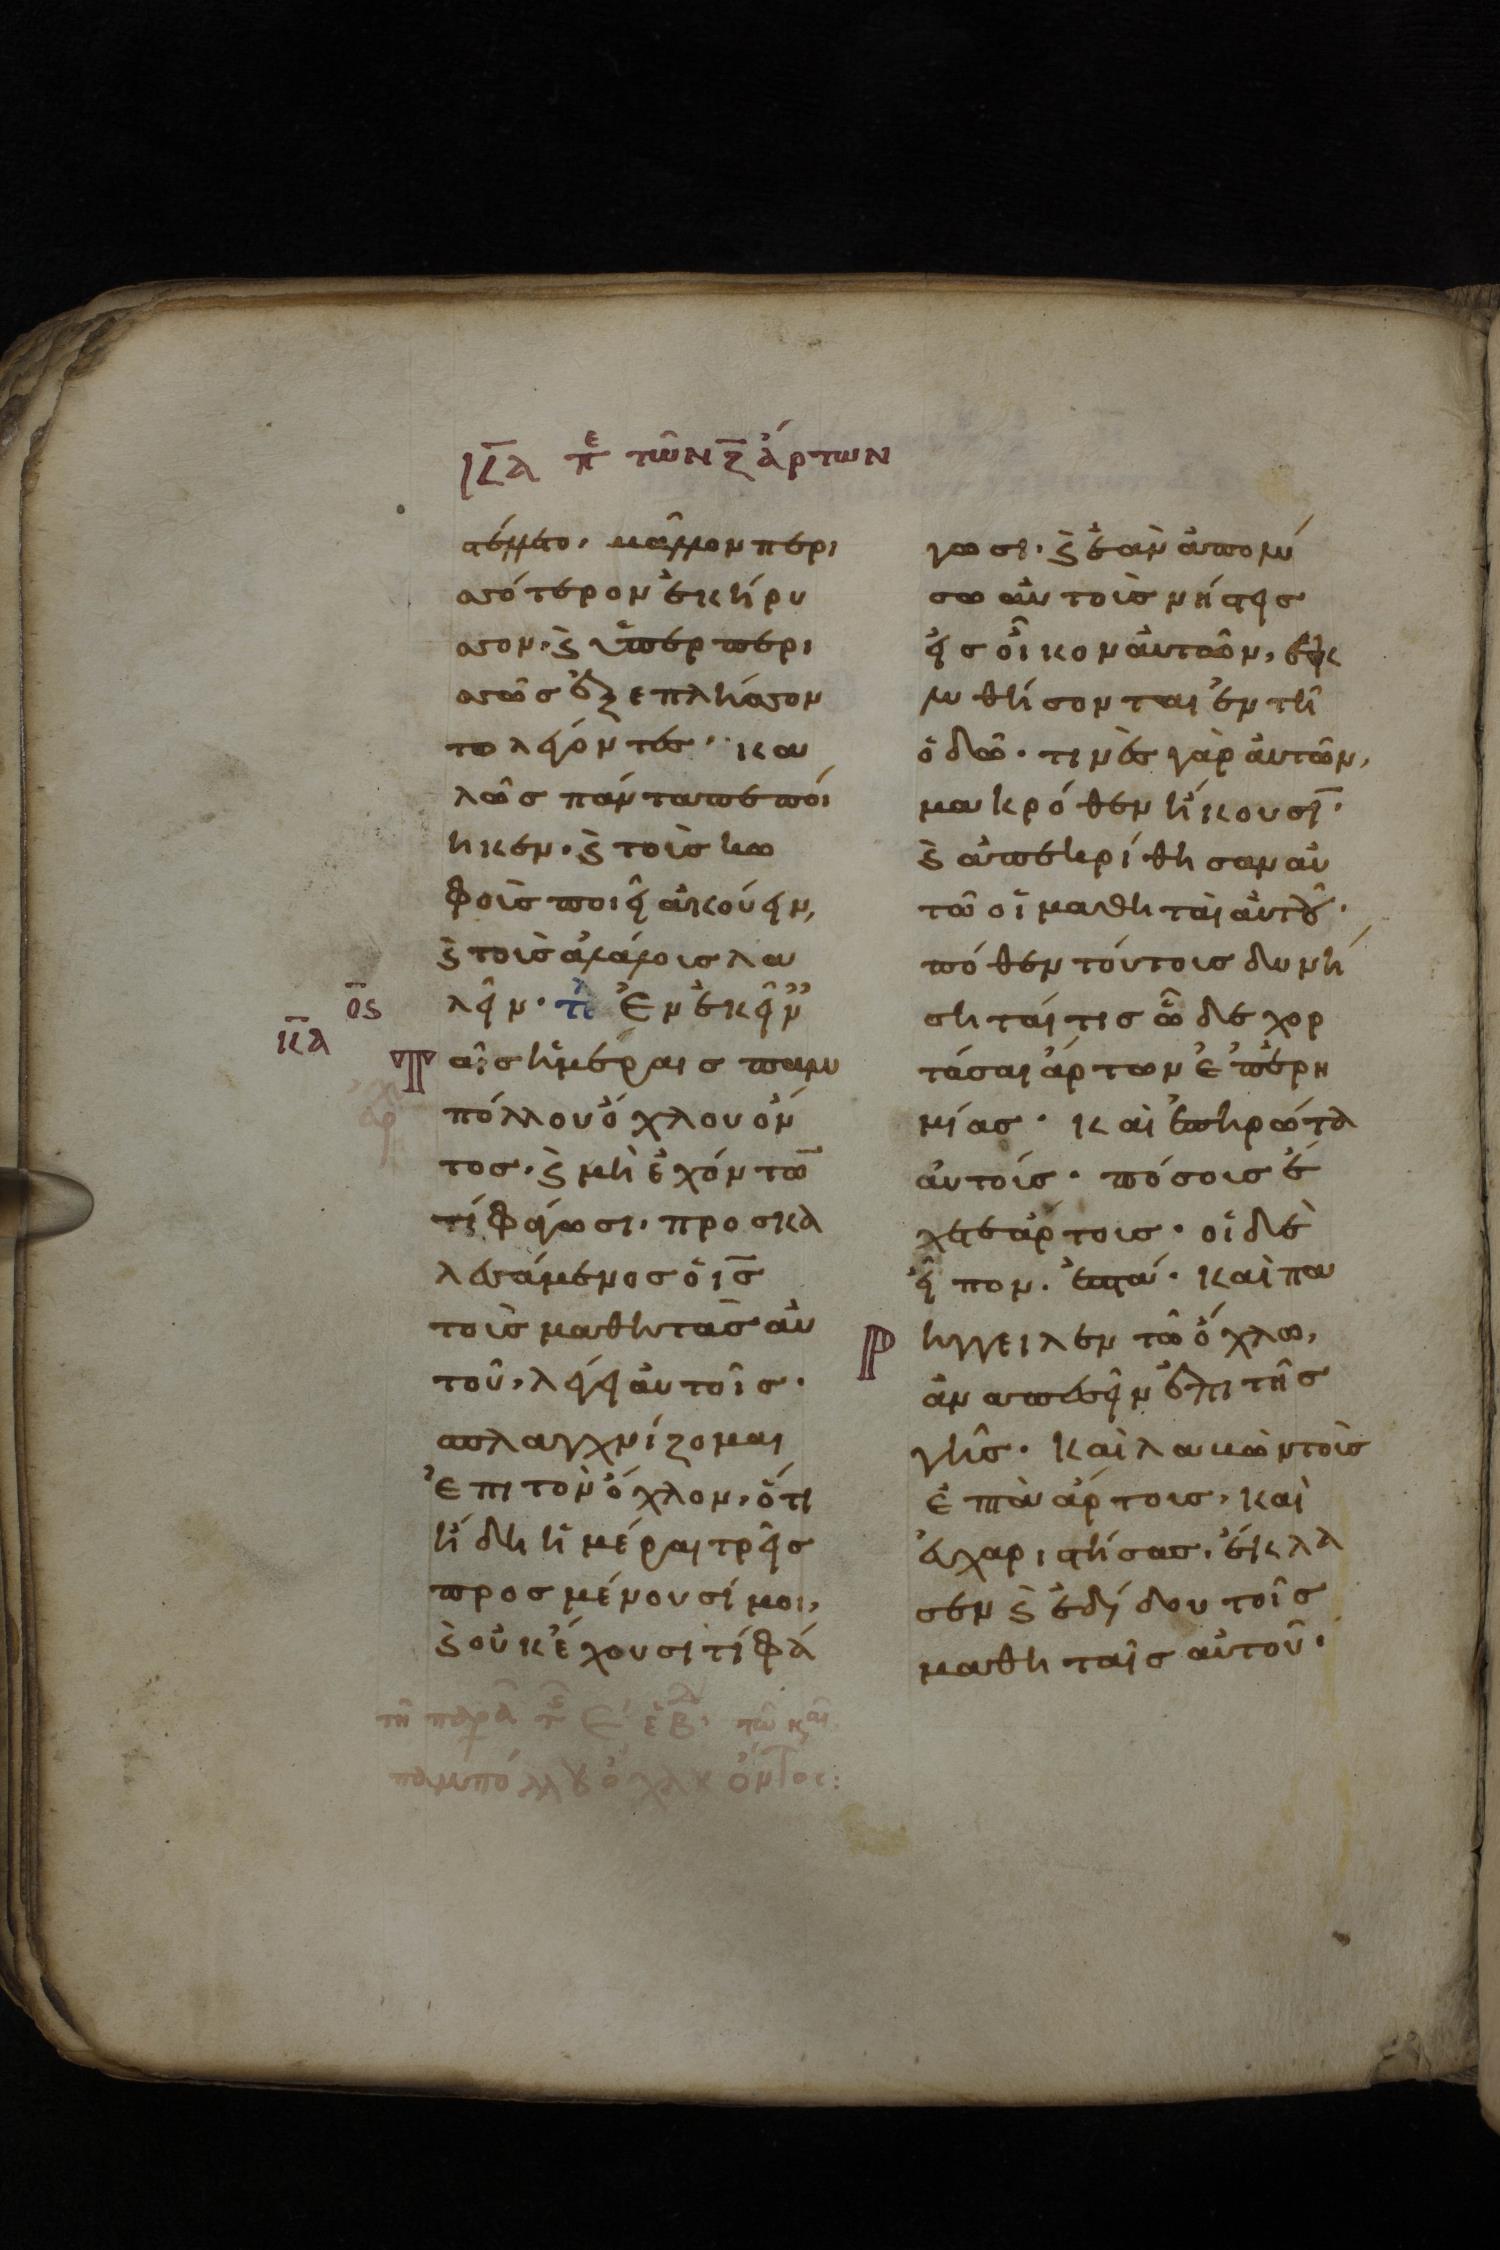 κα πε τῶν ζ ἄρτων
στέλλετο, μᾶλλον περι
σσότερον ἐκήρυ
σσον, ϛ ὑπερπερι
σσῶς ἐξεπλήσσον
το λέγοντες· κα
λῶς πάντα πεποί
ηκεν, ϛ τοὺς κω
φοὺς ποιεῖ ἀκούειν,
ϛ τοὺς ἀλάλους λα
ος λεῖν· τε Ἐν ἐκείν
κα Ταῖς ἡμέραις παμ
πόλλου ὄχλου ὄν
τος, ϛ μὴ ἐχόντω̅
τί φάγωσι, προσκα
λεσάμενος ὁ ι̅ς̅
τοὺς μαθητὰς αὐ
τοῦ, λέγει αὐτοῖς·
σπλαγχνίζομαι
ἐπὶ τὸν ὄχλον, ὅτι
ἤδη ἡμέραι τρεῖς
προσμένουσί μοι,
ϛ οὐκ ἔχουσι τί φά
γωσι· ϛ ἐὰν ἀπολύ
σω αὐτοὺς νήστεις
εἰς οἶκον αὐτῶν, ἐκ
λυθήσονται ἐν τῆ
ὁδῶ· τινὲς γὰρ αὐτῶν,
μακρόθεν ἥκουσι̅·
ϛ ἀπεκρίθησαν αὐ
τῶ οἱ μαθηταὶ αὐτοῦ·
πόθεν τούτους δυνή
σηταί τις ὧδε χορ
τάσαι ἄρτων ἐπ' ἐρη
μίας· καὶ ἐπηρώτα
αὐτούς· πόσους ἔ
χετε ἄρτους· οἱ δὲ
εἶπον· ἑπτά· καὶ πα
ρήγγειλεν τῶ ὄχλω,
ἀναπεσεῖν ἐπὶ τῆς
γῆς· καὶ λαβὼν τοὺς
ἑπτὰ ἄρτους, καὶ
εὐχαριστήσας, ἔκλα
σεν ϛ ἐδίδου τοῖς
μαθηταῖς αὐτοῦ·
παμπόλλου ὄχλου ὄντος: